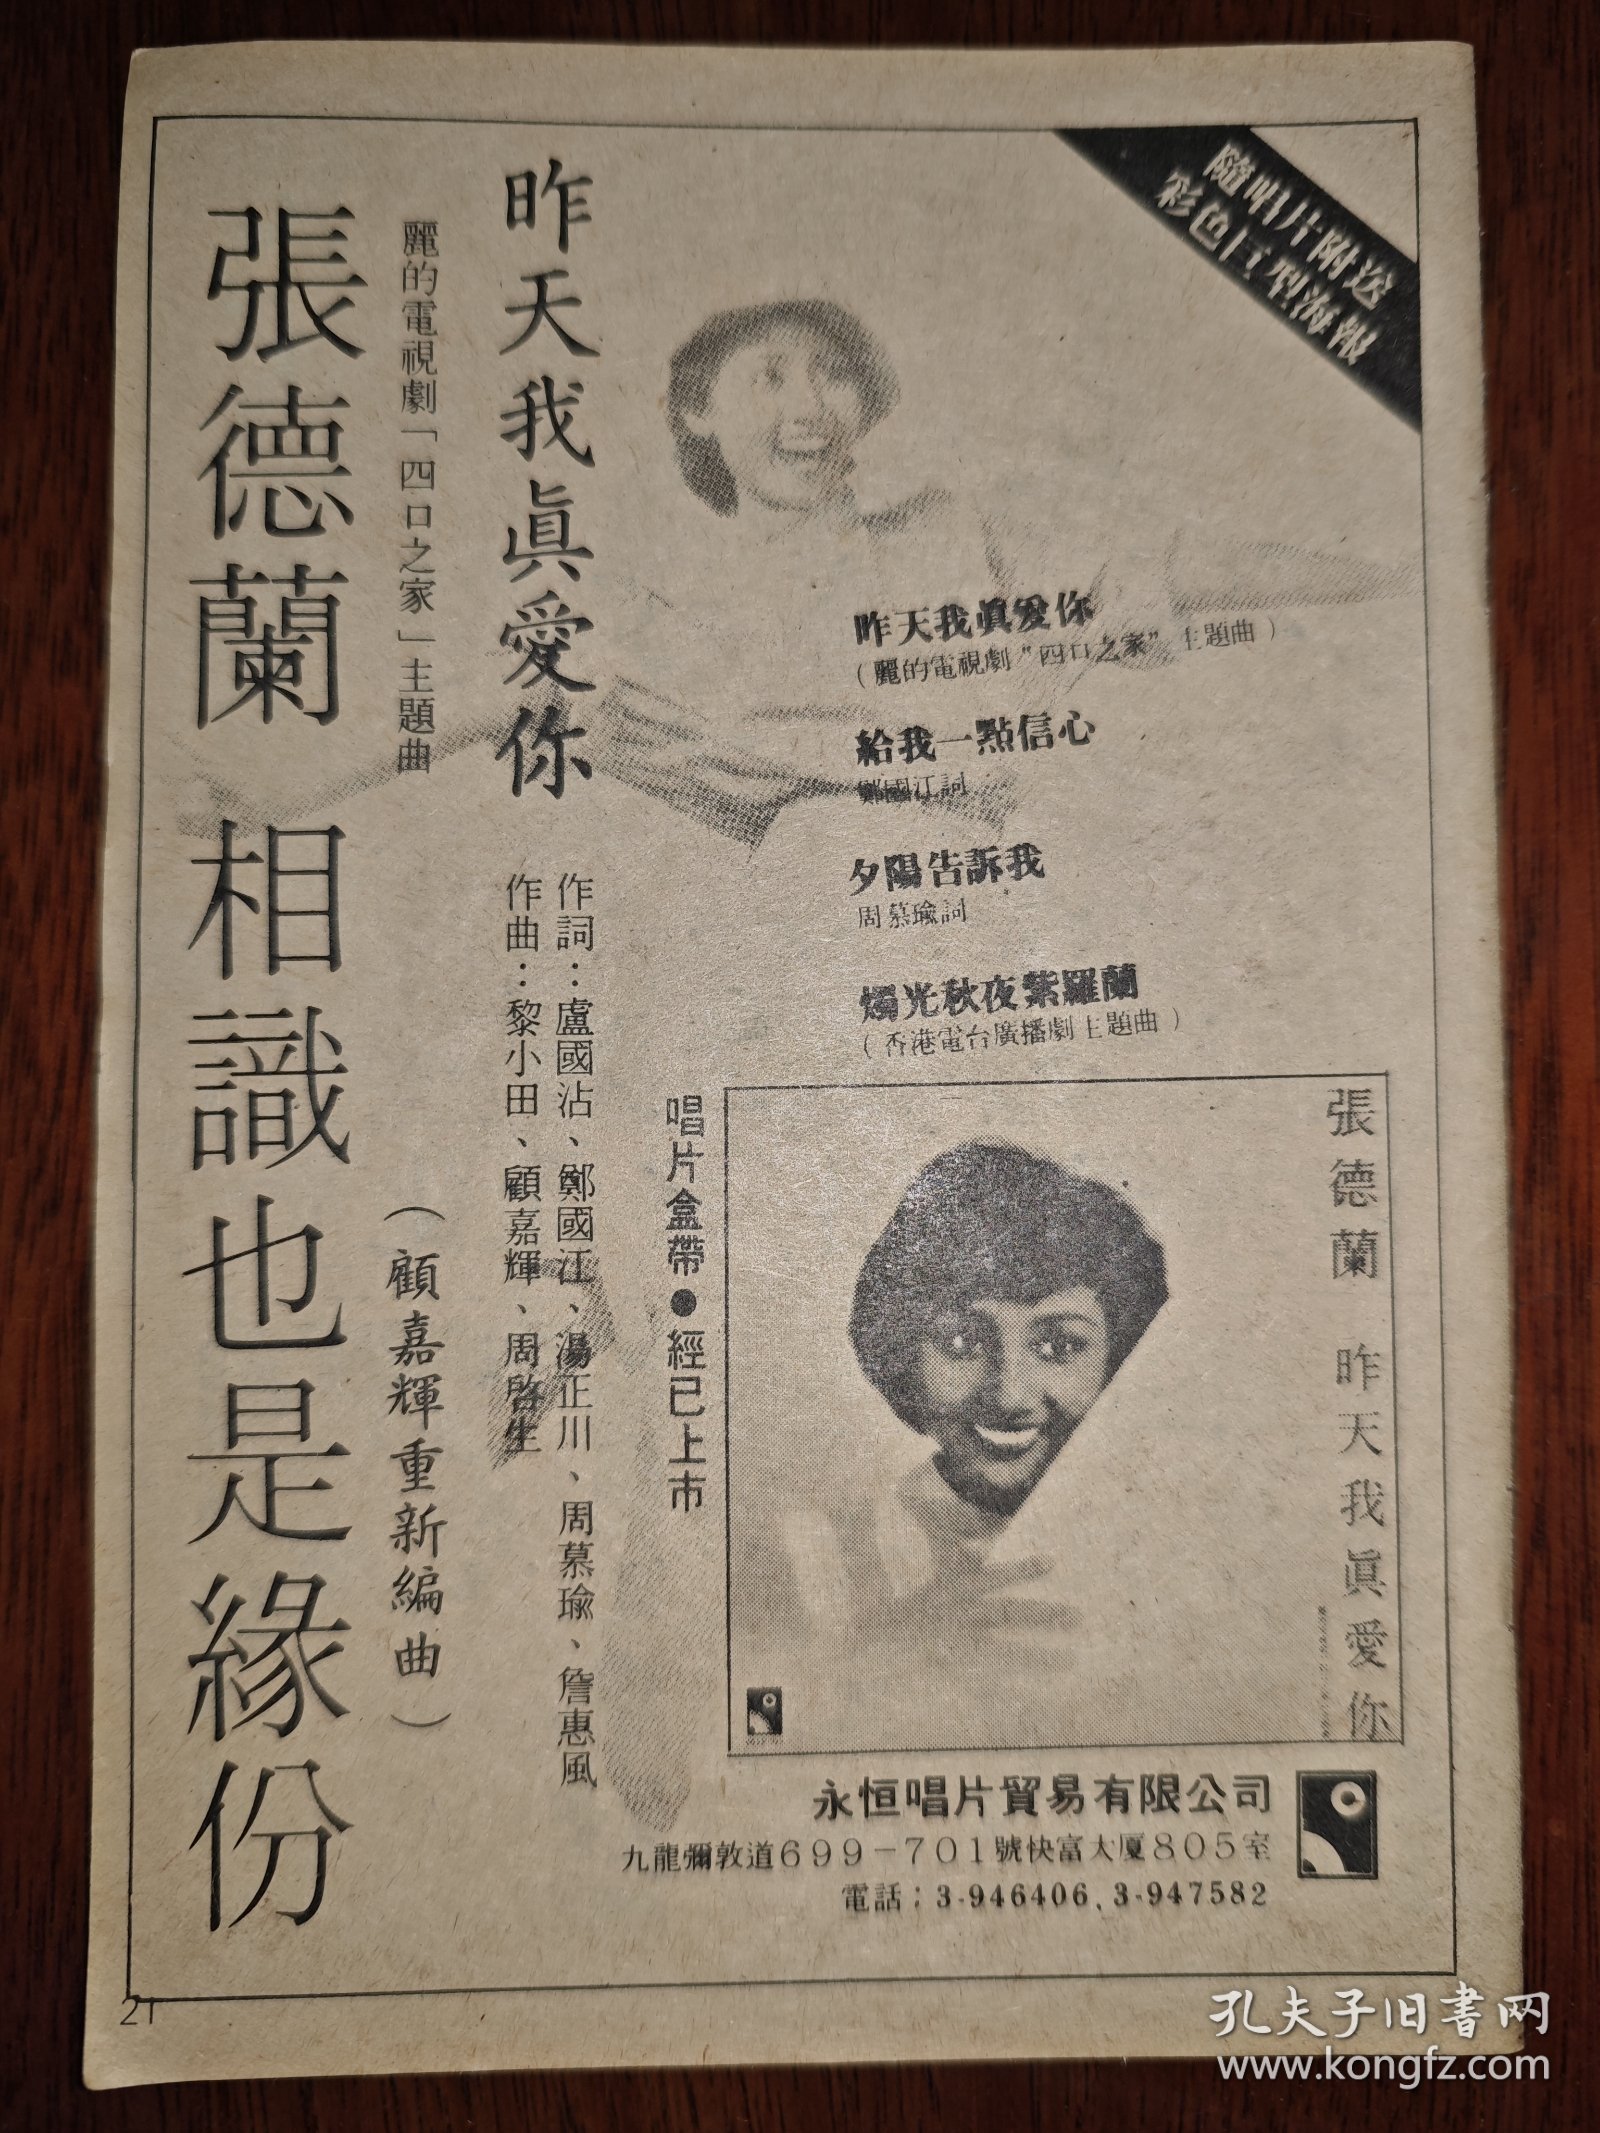 隨唱片附送
彩色巨型海報
昨天我眞愛你
麗的電視劇「四口之家」主題曲
張德蘭 相識也是緣份
(顧嘉輝重新編曲)
作詞：盧國沾、鄭國江、湯正川、周慕瑜、詹惠風
作曲：黎小田、顧嘉輝、周啓生
昨天我眞愛你
(麗的電視劇“四口之家”主題曲)
給我一點信心
鄭國江詞
夕陽告訴我
周慕瑜詞
燭光秋夜紫羅蘭
(香港電台廣播劇主題曲)
唱片盒帶●經已上市
張德蘭 昨天我眞愛你
永恒唱片貿易有限公司
九龍彌敦道699－701號快富大厦805室
電話：3-946406、3-947582
21
孔夫子旧书网
www.kongfz.com